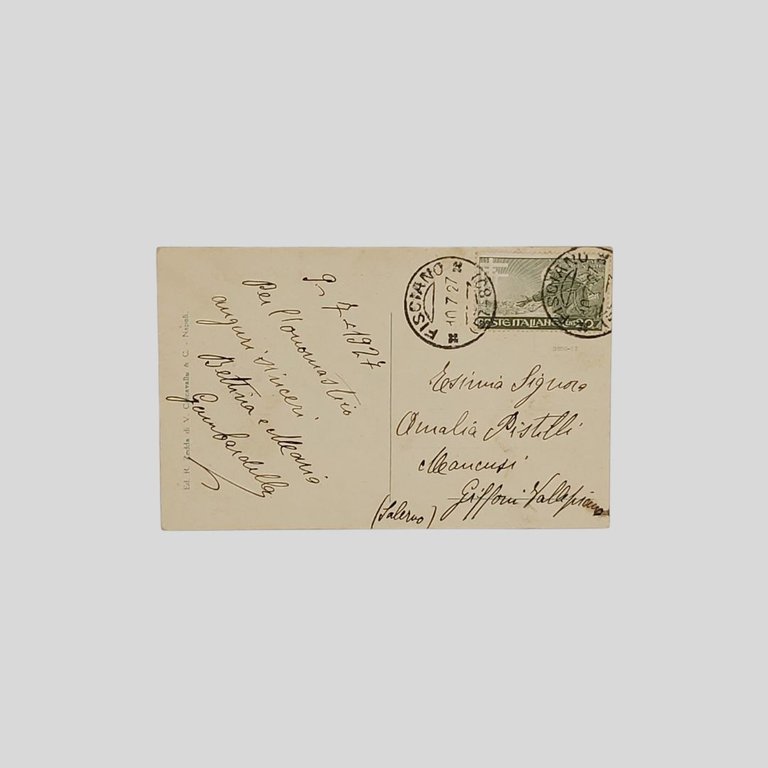 9-7-1927
Per l'onomastico
auguri sinceri
Bettina e Maria
Gambardella
FISCIANO
10.7.27
FISCIANO
10.7.27
POSTE ITALIANE CENT 20
Esimia Signora
Amalia Pistilli
Mancusi
Giffoni Vallepiana
(Salerno)
Ed. R. Zedda di V. Carcavallo & C. - Napoli